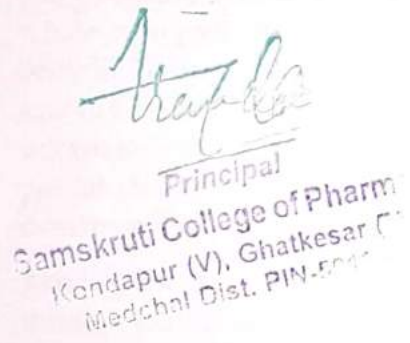 Principal
Samskruti College of Pharm
Kondapur (V), Ghatkesar
Medchal Dist. PIN-